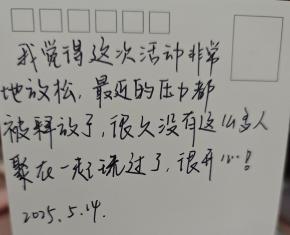 我觉得这次活动非常
地放松，最近的压力都
被释放了，很久没有这么多人
聚在一起玩过了，很开心！
2025.5.14.